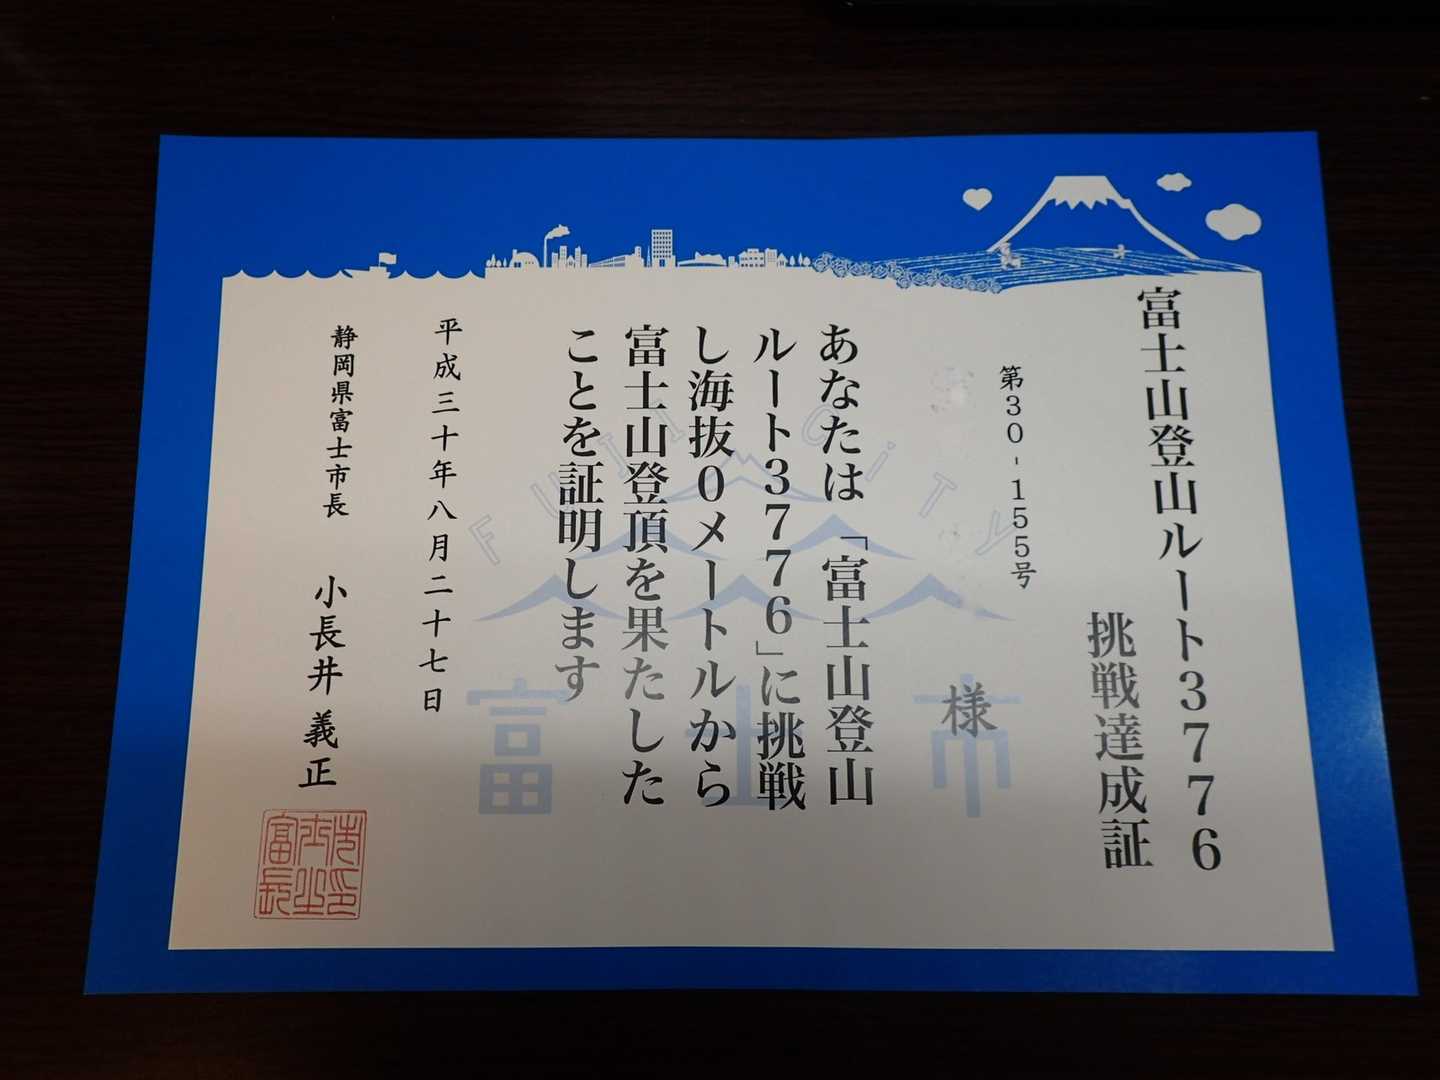 富士山登山ルート3776
挑戦達成証
第30-155号
様
あなたは「富士山登山
ルート3776」に挑戦
し海抜0メートルから
富士山登頂を果たした
ことを証明します
平成三十年八月二十七日
静岡県富士市長 小長井義正
FUJI CiTy
富士市